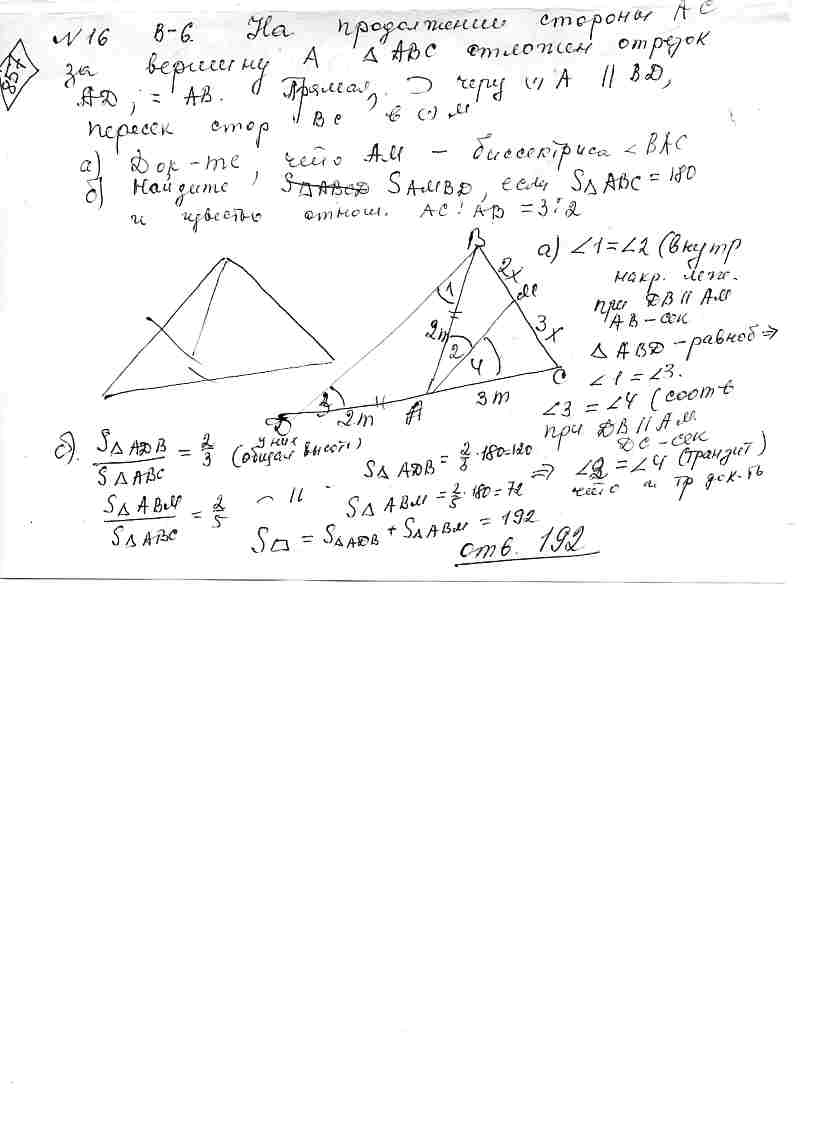 857
N 16 В-6. На продолжении стороны АС
за вершину А △ АВС отложен отрезок
АD, = АВ. Прямая, ⊃ через (·) А || BD,
пересек стор ВС в (·) М
а) Док-те, что АМ – биссектриса ∠ ВАС
б) Найдите S△ABCD SAMBD, если S△ ABC = 180
и известно отнош. АС : АВ = 3:2
а) ∠1=∠2 (внутр
накр. леж.
при DB || AM
АВ – сек
△ ABD – равноб ⇒
∠1 = ∠3.
∠3 = ∠4 (соотв
при DB || AM.
DC – сек
⇒ ∠2 = ∠4 (транзит)
что и тр док-ть
B
2x
M
3x
C
1
2m
2
4
3
D
2m
A
3m
б). S△ ADB / S△ ABC = 2/3 (у них общая высота) S△ ADB = 2/3 · 180=120
S△ ABM / S△ ABC = 2/5 – || – S△ ABM = 2/5 · 180 = 72
S = S△ADB + S△ABM = 192
отв. 192